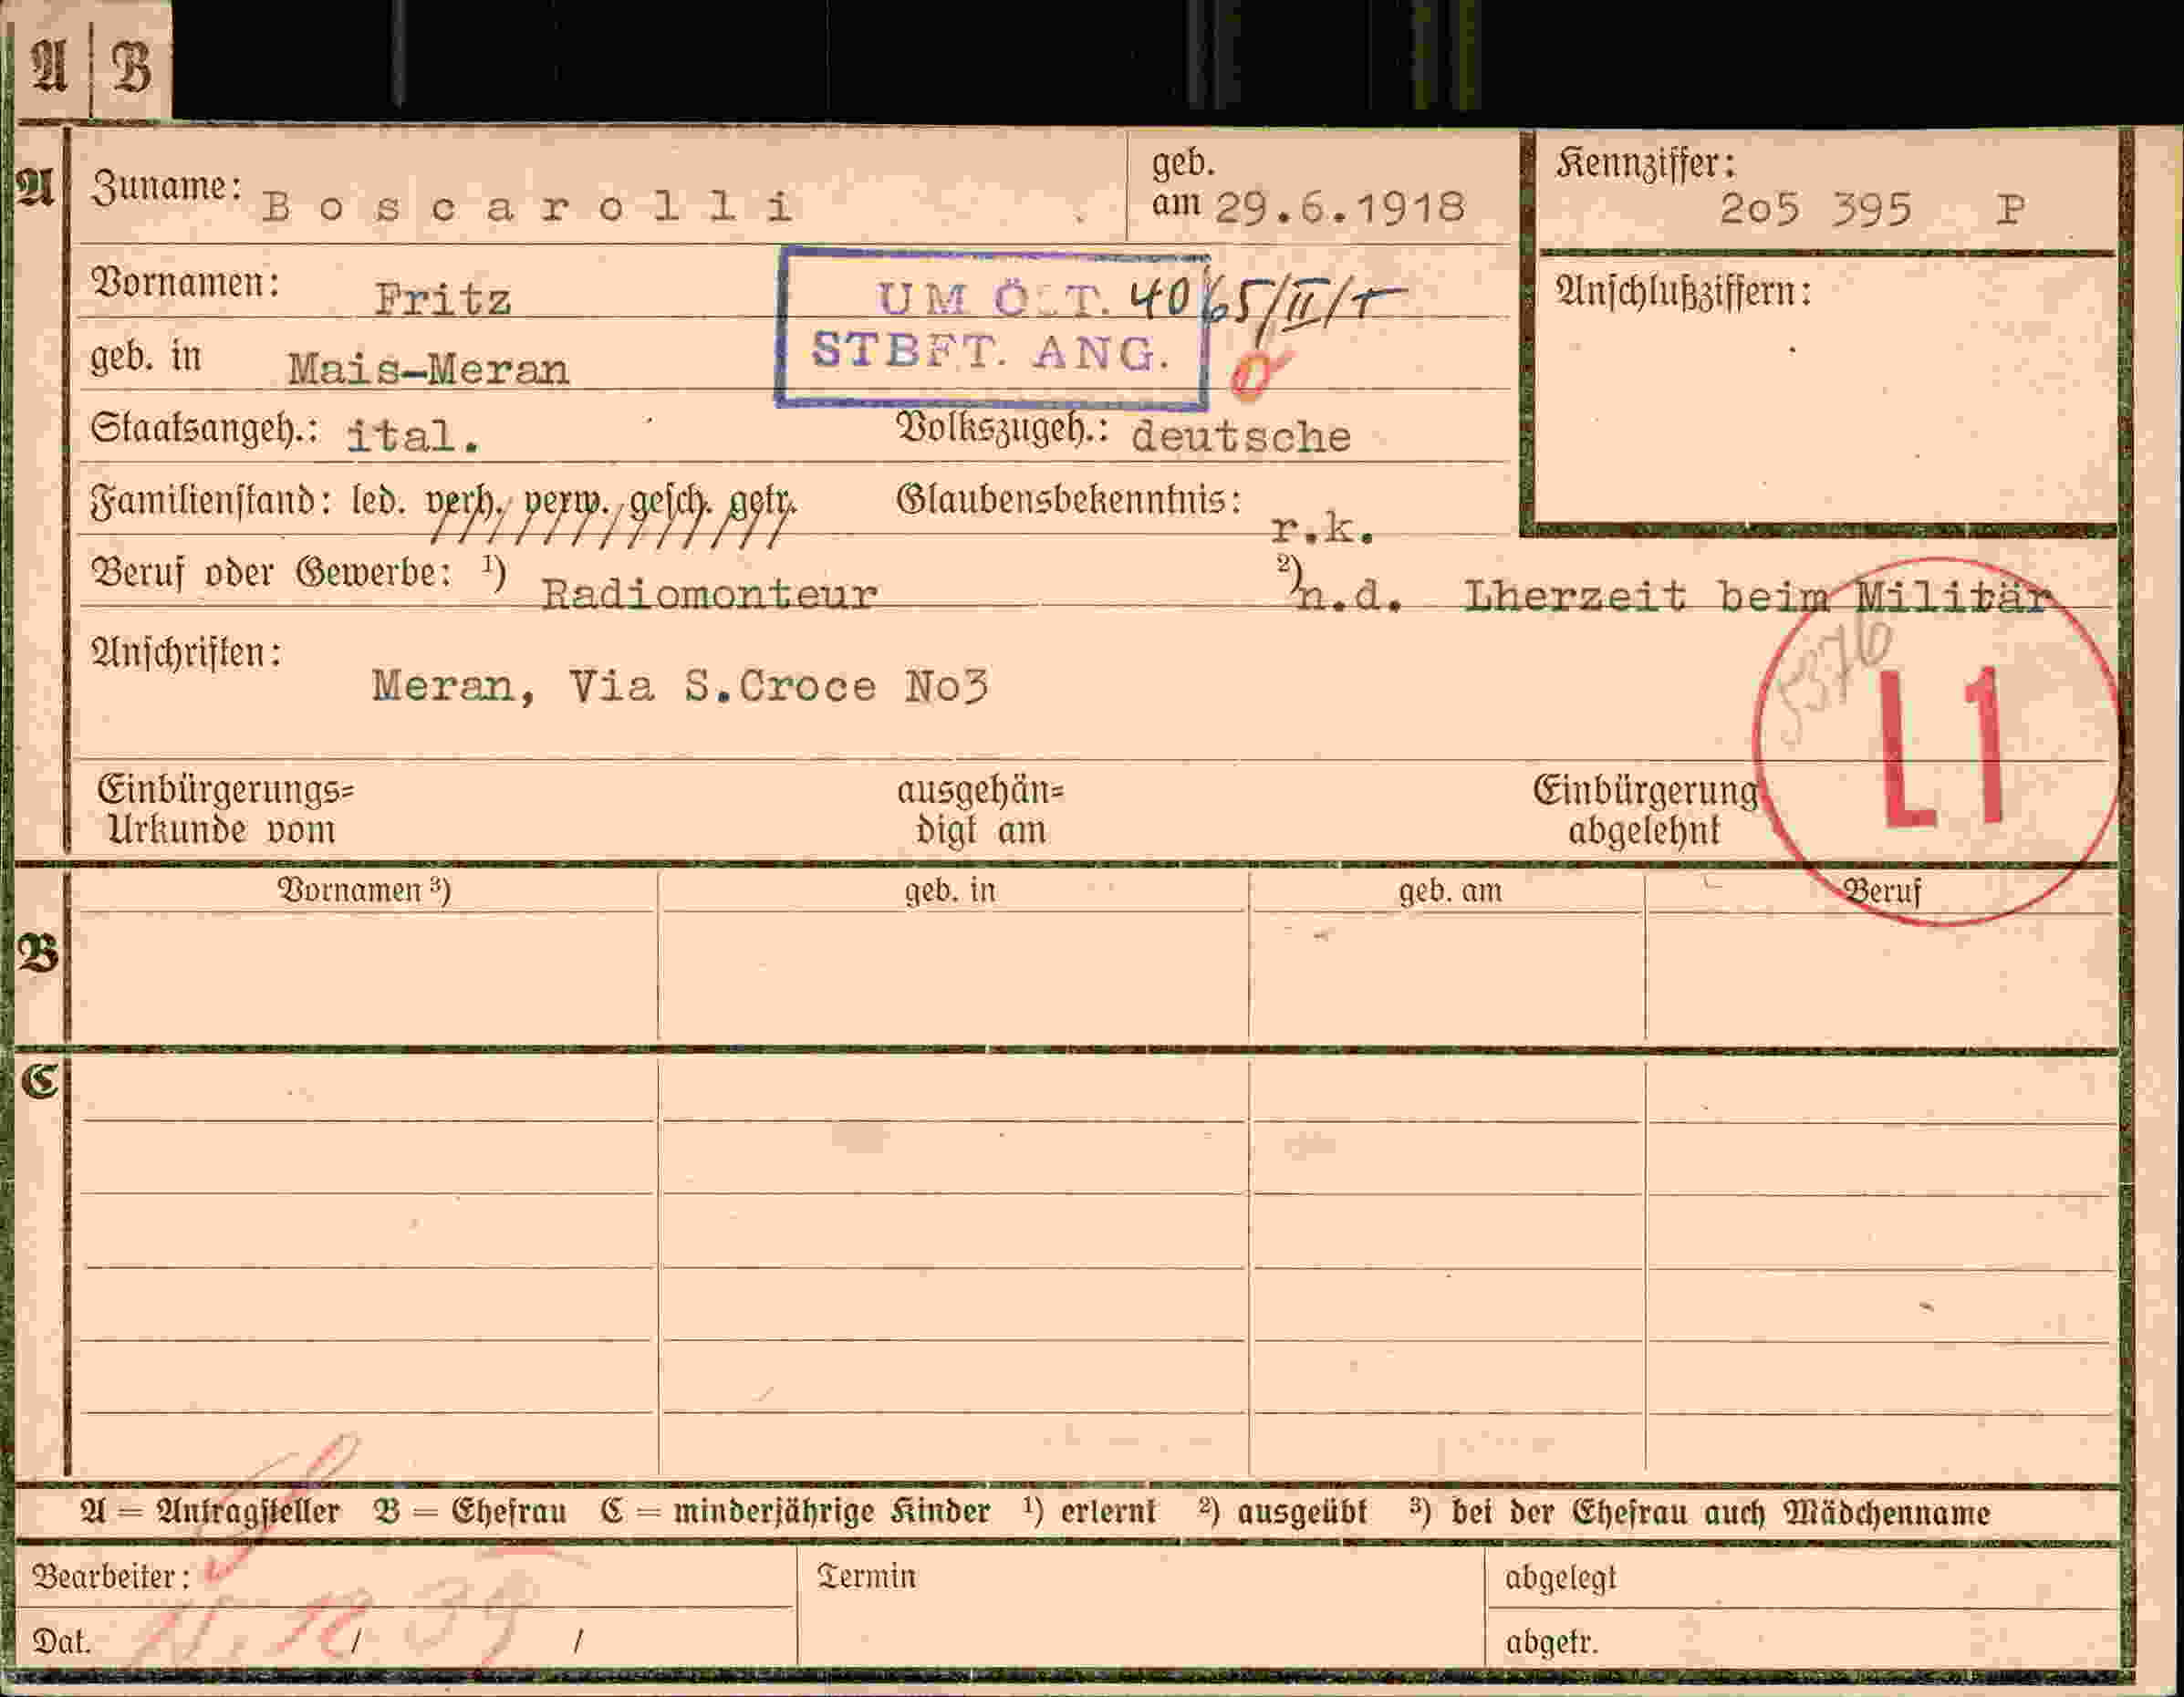 A B
A Zuname: Boscarolli geb. am 29.6.1918 Kennziffer: 2o5 395 P
Vornamen: Fritz UM ÖST. 4065/II/ Anschlußziffern:
geb. in Mais-Meran STBFT. ANG.
Staatsangeh.: ital. Volkszugeh.: deutsche
Familienstand: led. verh. verw. gesch. getr. Glaubensbekenntnis: r.k.
Beruf oder Gewerbe: ¹) Radiomonteur ²) n.d. Lherzeit beim Militär
Anschriften: Meran, Via S.Croce No3
5376
L1
Einbürgerungs= Urkunde vom ausgehän= digt am Einbürgerung abgelehnt
B Vornamen ³) geb. in geb. am Beruf
C
A = Antragsteller B = Ehefrau C = minderjährige Kinder ¹) erlernt ²) ausgeübt ³) bei der Ehefrau auch Mädchenname
Bearbeiter: Termin abgelegt
Dat. / / abgetr.